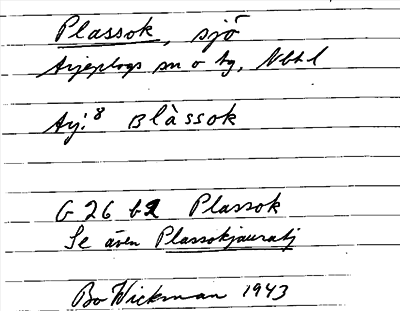 Plassok, sjö
Arjeplogs sn o hg, Nbtl
Arj.8 Blàssok
G 26 b2 Plassok
Se även Plassokjauratj
Bo Wickman 1943